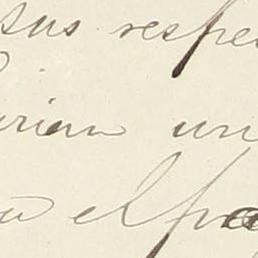 sus respe
rian un
a el pa